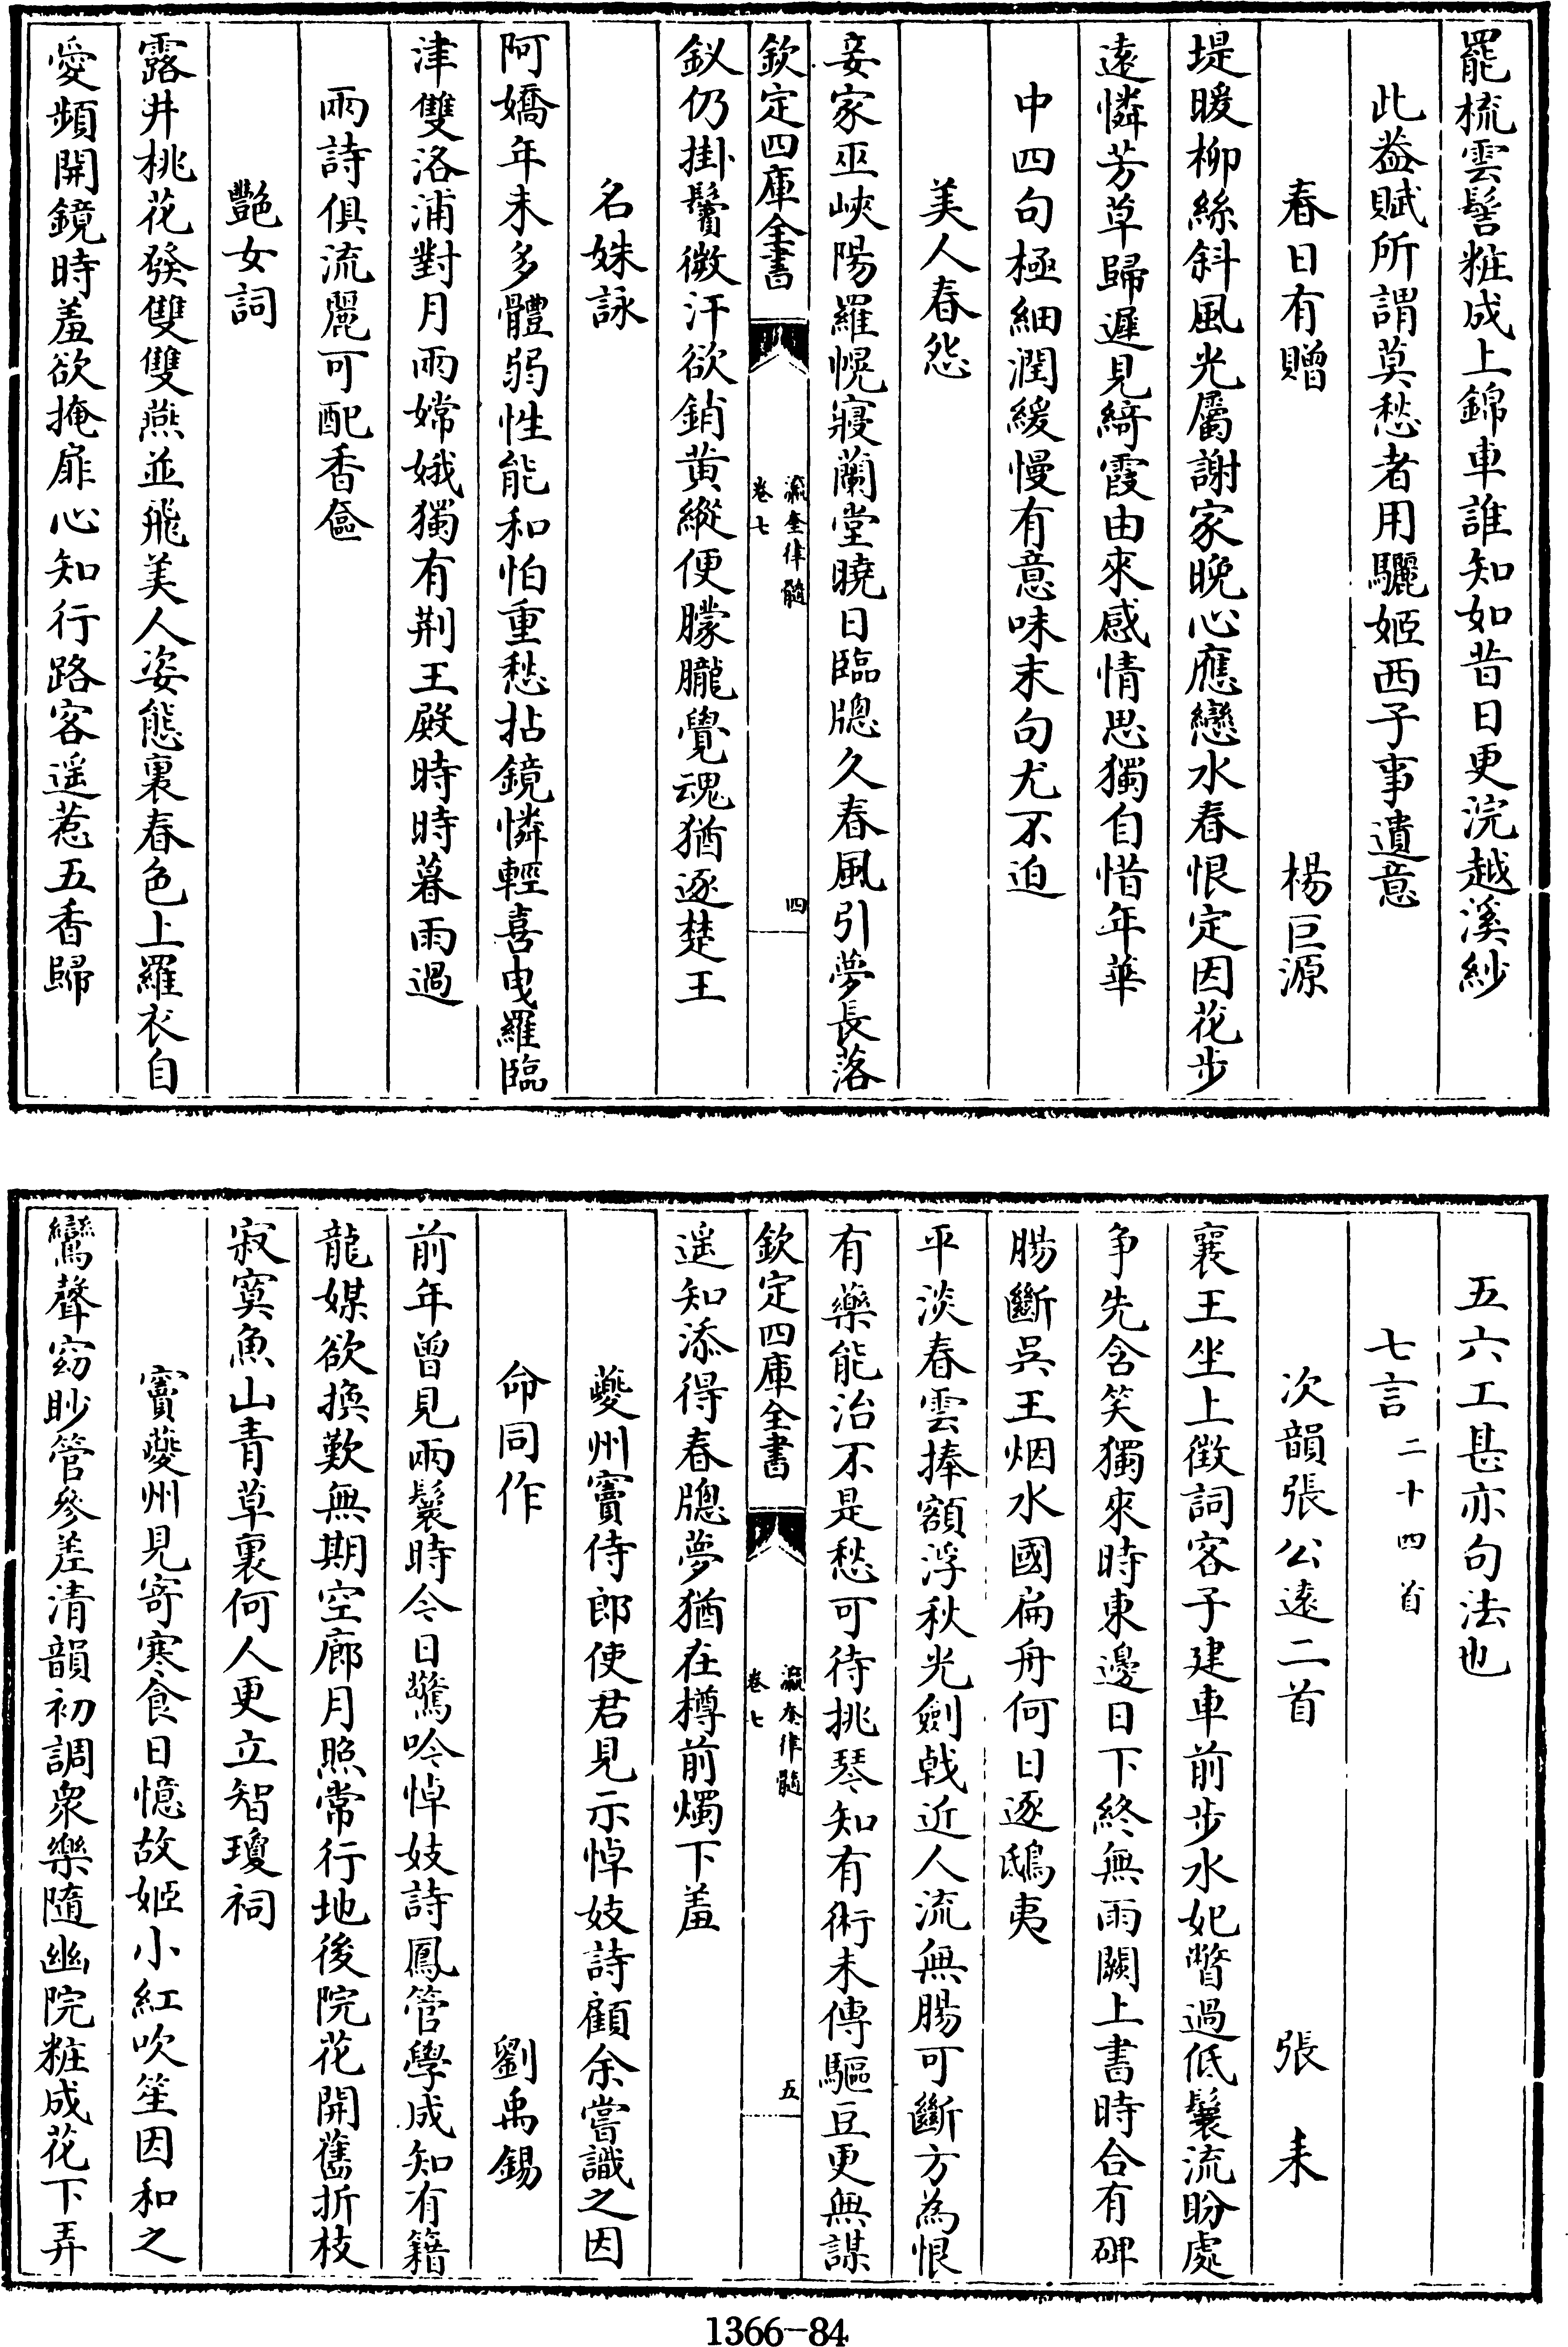 罷梳雲髻粧成上錦車誰知如昔日更浣越溪紗
此益賦所謂莫愁者用驪姬西子事遺意
春日有贈 楊巨源
堤暖柳絲斜風光屬謝家晚心應戀水春恨定因花步
遠憐芳草歸遲見綺霞由來感情思獨自惜年華
中四句極細潤緩慢有意味末句尤不迫
美人春怨
妾家巫峽陽羅幌寢蘭堂曉日臨牕久春風引夢長落
欽定四庫全書
瀛奎律髓
卷七
四
釵仍掛鬢微汗欲銷黃縱便朦朧覺魂猶逐楚王
名姝詠
阿嬌年未多體弱性能和怕重愁拈鏡憐輕喜曳羅臨
津雙洛浦對月兩嫦娥獨有荆王殿時時暮雨過
兩詩俱流麗可配香奩
艷女詞
露井桃花發雙雙燕並飛美人姿態裏春色上羅衣自
愛頻開鏡時羞欲掩扉心知行路客遥惹五香歸
五六工甚亦句法也
七言二十四首
次韻張公遠二首 張耒
襄王坐上徴詞客子建車前步水妃瞥過低鬟流盼處
争先含笑獨來時東邊日下終無雨闕上書時合有碑
腸斷吳王烟水國扁舟何日逐鴟夷
平淡春雲捧額浮秋光劍戟近人流無腸可斷方為恨
有藥能治不是愁可待挑琴知有術未傳驅豆更無謀
欽定四庫全書
瀛奎律髓
卷七
五
遥知添得春牕夢猶在樽前燭下羞
夔州竇侍郎使君見示悼妓詩顧余嘗識之因
命同作 劉禹錫
前年曾見兩鬟時今日驚吟悼妓詩鳳管學成知有籍
龍媒欲換歎無期空廊月照常行地後院花開舊折枝
寂寞魚山青草裏何人更立智瓊祠
竇夔州見寄寒食日憶故姬小紅吹笙因和之
鸞聲窈眇管參差清韻初調衆樂隨幽院粧成花下弄
1366-84